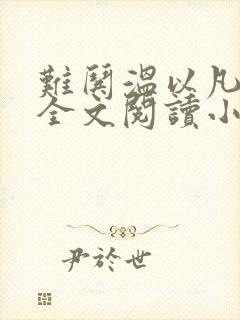 難鬨溫以凡
全文閱讀小
尹於世